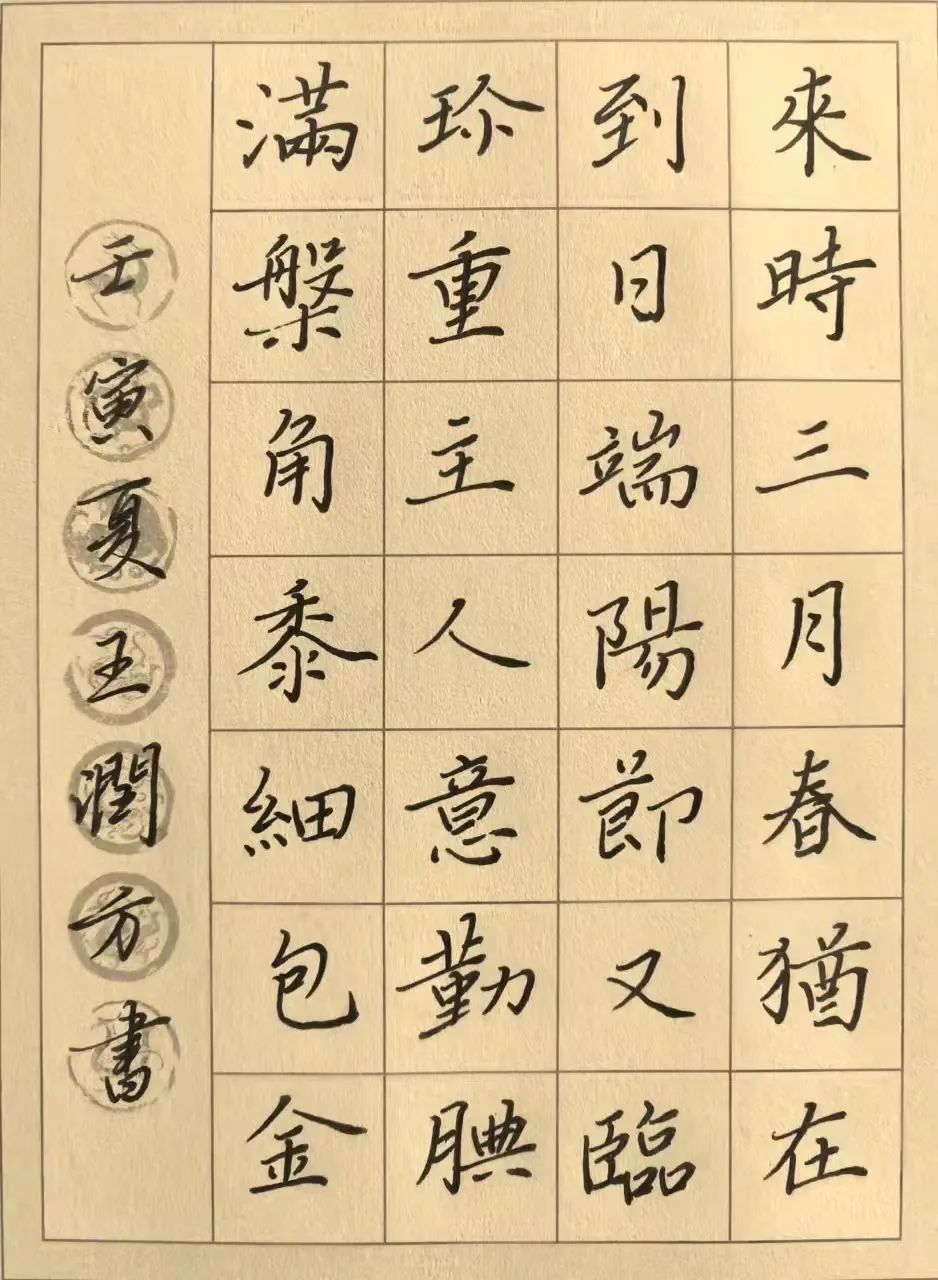 來時三月春猶在
到日端陽節又臨
珎重主人意勤腆
滿槃角黍細包金
壬寅夏王潤方書